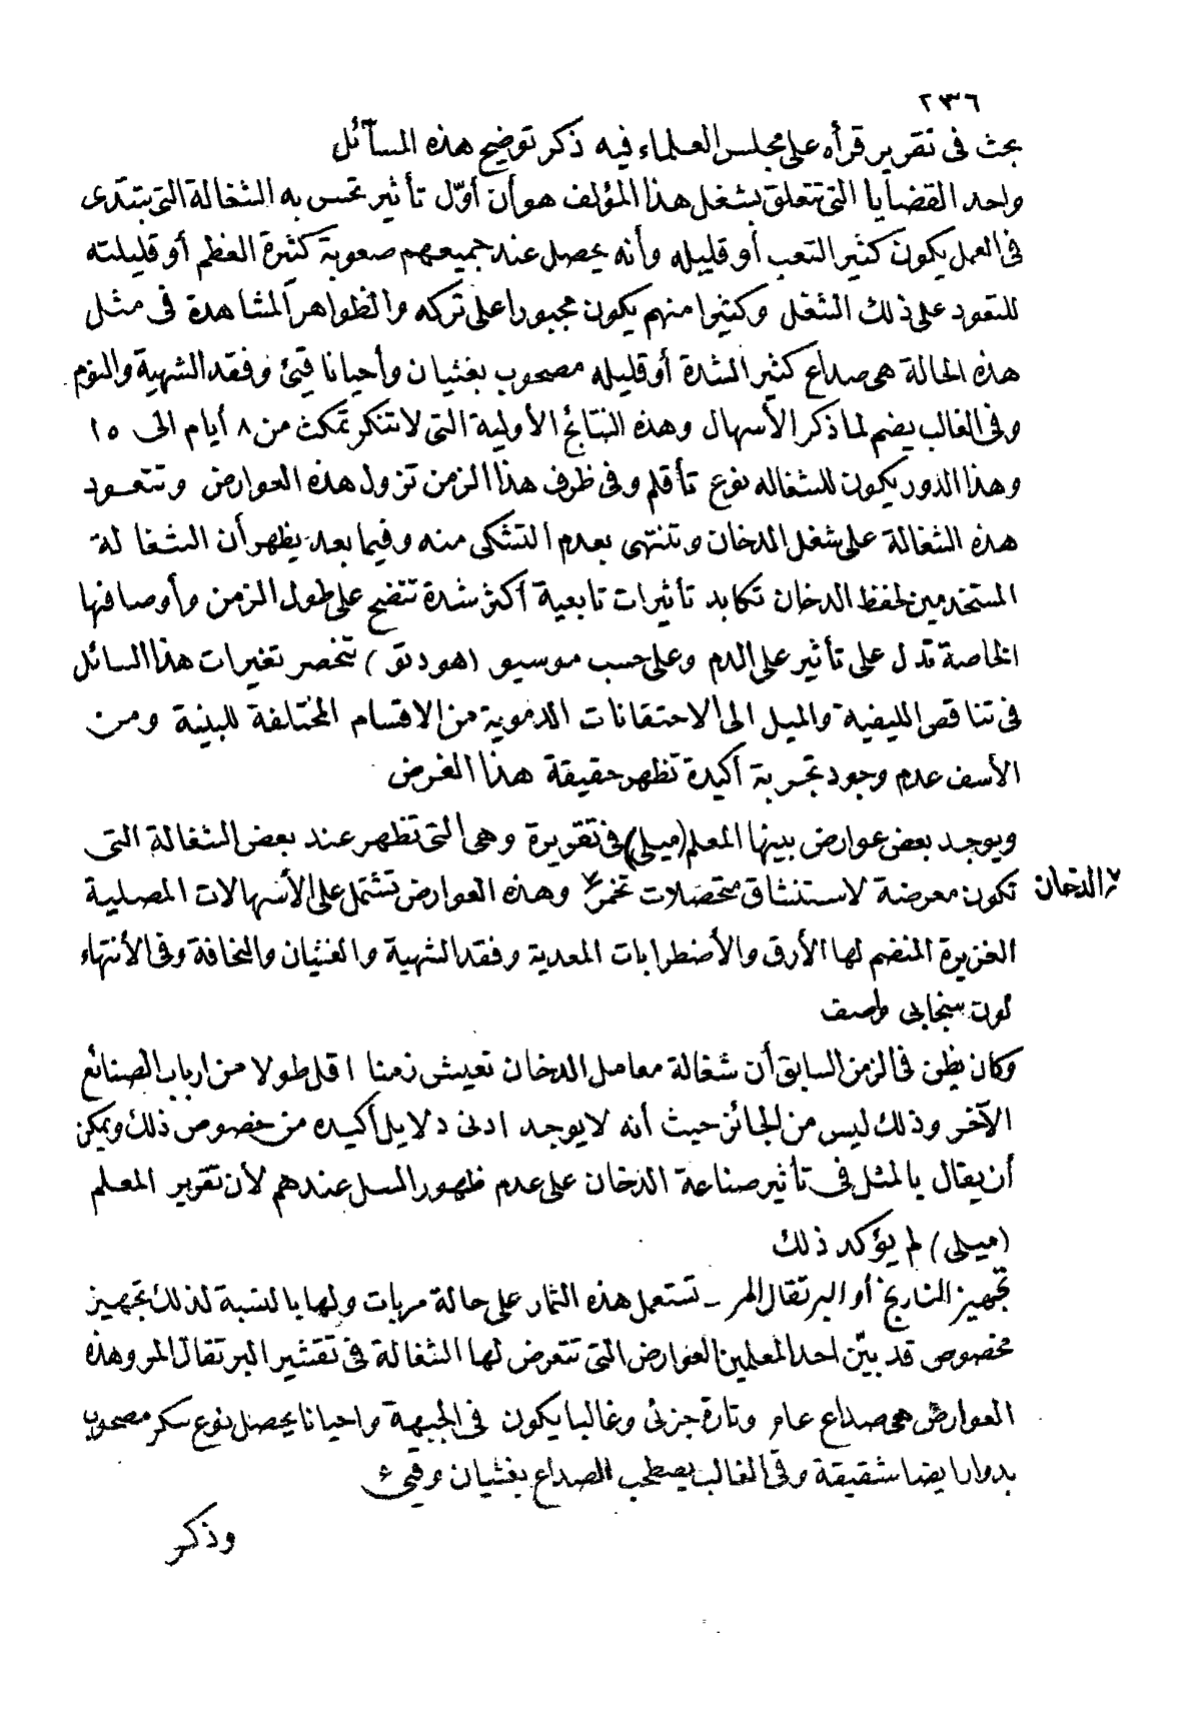 ٢٣٦
بحث فى تقرير قرأه على مجلس العلماء فيه ذكر توضيح هذه المسآئل
واحد القضايا التى تتعلق بشغل هذا المؤلف هو أن أوّل تأثير تحس به الشغالة التى تبتدى
فى العمل يكون كثير التعب أو قليله وأنه يحصل عند جميعهم صعوبة كثيرة العظم أو قليلته
للتعود على ذلك الشغل وكثيرا منهم يكون مجبورا على تركه والظواهر المشاهدة فى مثل
هذه الحالة هى صداع كثير الشدة أو قليله مصحوب بغثيان وأحيانا قيئ وفقد الشهية والنوم
وفى الغالب يضم لما ذكر الأسهال وهذه النتائج الأولية التى لا تنكر تمكث من ٨ أيام الى ١٥
وهذا الدور يكون للشغاله نوع تأقلم وفى ظرف هذا الزمن تزول هذه العوارض وتتعود
هذه الشغالة على شغل الدخان وتنتهى بعدم التشكى منه وفيما بعد يظهر أن الشغالة
المستخدمين لحفظ الدخان تكابد تأثيرات تابعية أكثر شدة تتضح على طول الزمن وأوصافها
الخاصة تدل على تأثير على الدم وعلى حسب موسيو (هودتو) تنحصر تغيرات هذا السائل
فى تناقص الليفية والميل الى الاحتقانات الدموية من الاقسام المختلفة للبنية ومن
الأسف عدم وجود تجربة أكيدة تظهر حقيقة هذا الغرض
ويوجد بعض عوارض بينها المعلم (ميلى) فى تقريرة وهى التى تظهر عند بعض الشغالة التى
تكون معرضة لاستنشاق متحصلات تخمر وهذه العوارض تشتمل على الأسهالات المصلية
الدخان
الغزيرة المنضم لها الأرق والأضطرابات المعدية وفقد الشهية والغثيان والنحافة وفى الأنتهاء
لون سنجابى واصف
وكان يظن فى الزمن السابق أن شغالة معامل الدخان تعيش زمنا اقل طولا من ارباب الصنائع
الآخر وذلك ليس من الجائز حيث أنه لا يوجد ادنى دلايل أكيده من خصوص ذلك ويمكن
أن يقال بالمثل فى تأثير صناعة الدخان على عدم ظهور السل عندهم لأن تقرير المعلم
(ميلى) لم يؤكد ذلك
تجهيز النارنج أو البرتقال المر ـ تستعمل هذه الثمار على حالة مربات ولها بالنسبة لذلك تجهيز
مخصوص قد بيّن احد المعلمين العوارض التى تتعرض لها الشغالة فى تقشير البرتقال المر وهذه
العوارض هى صداع عام وتارة جزئى وغالبا يكون فى الجبهة واحيانا يحصل نوع سكر مصحوب
بدوار ايضا شقيقة وفى الغالب يصطحب الصداع بغثيان وقيئ
وذكر